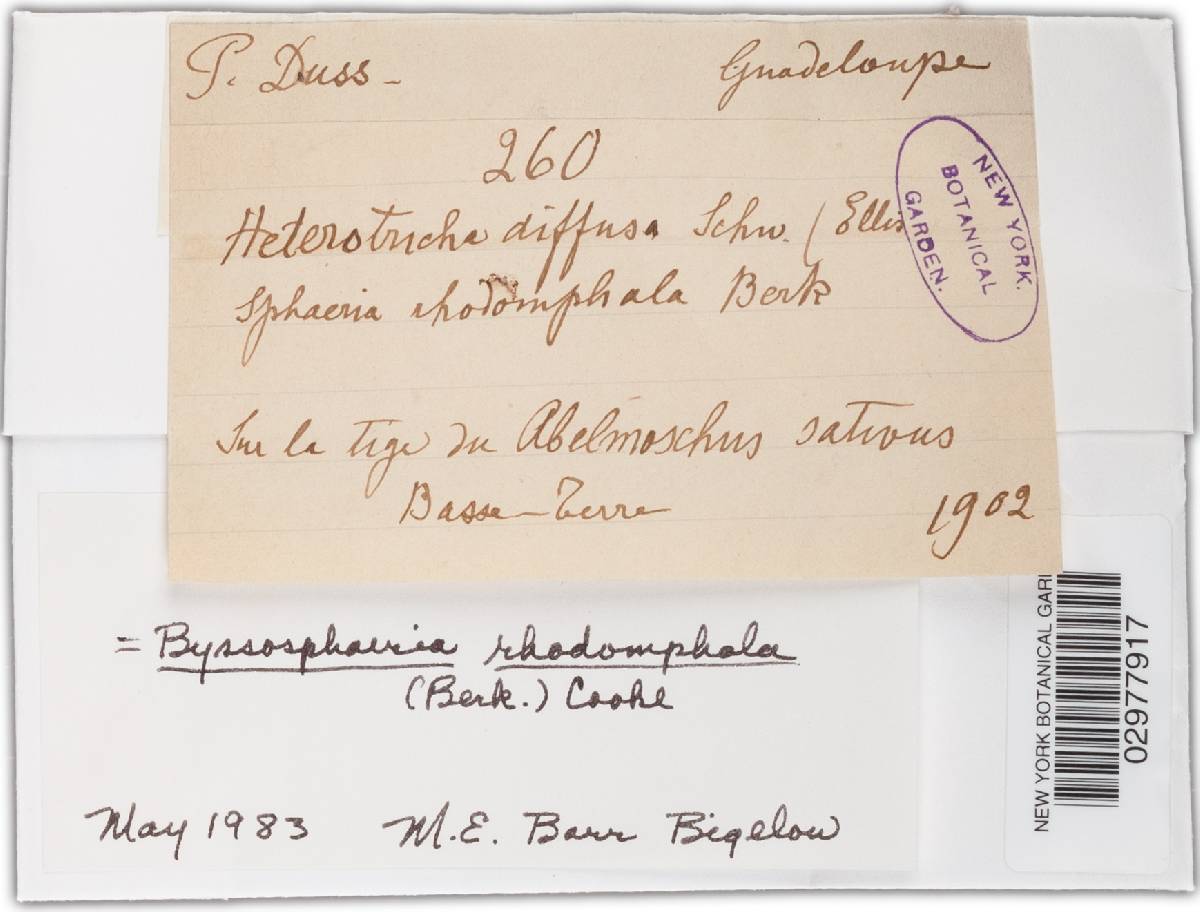 P. Duss - Guadeloupe
260
Heterotricha diffusa Schw. (Ellis
Sphaeria rhodomphala Berk
NEW YORK.
BOTANICAL
GARDEN.
Sur la tige du Abelmoschus sativus
Basse-Terre 1902
= Byssosphaeria rhodomphala
(Berk.) Cooke
May 1983 M.E. Barr Bigelow
NEW YORK BOTANICAL GARI
02977917